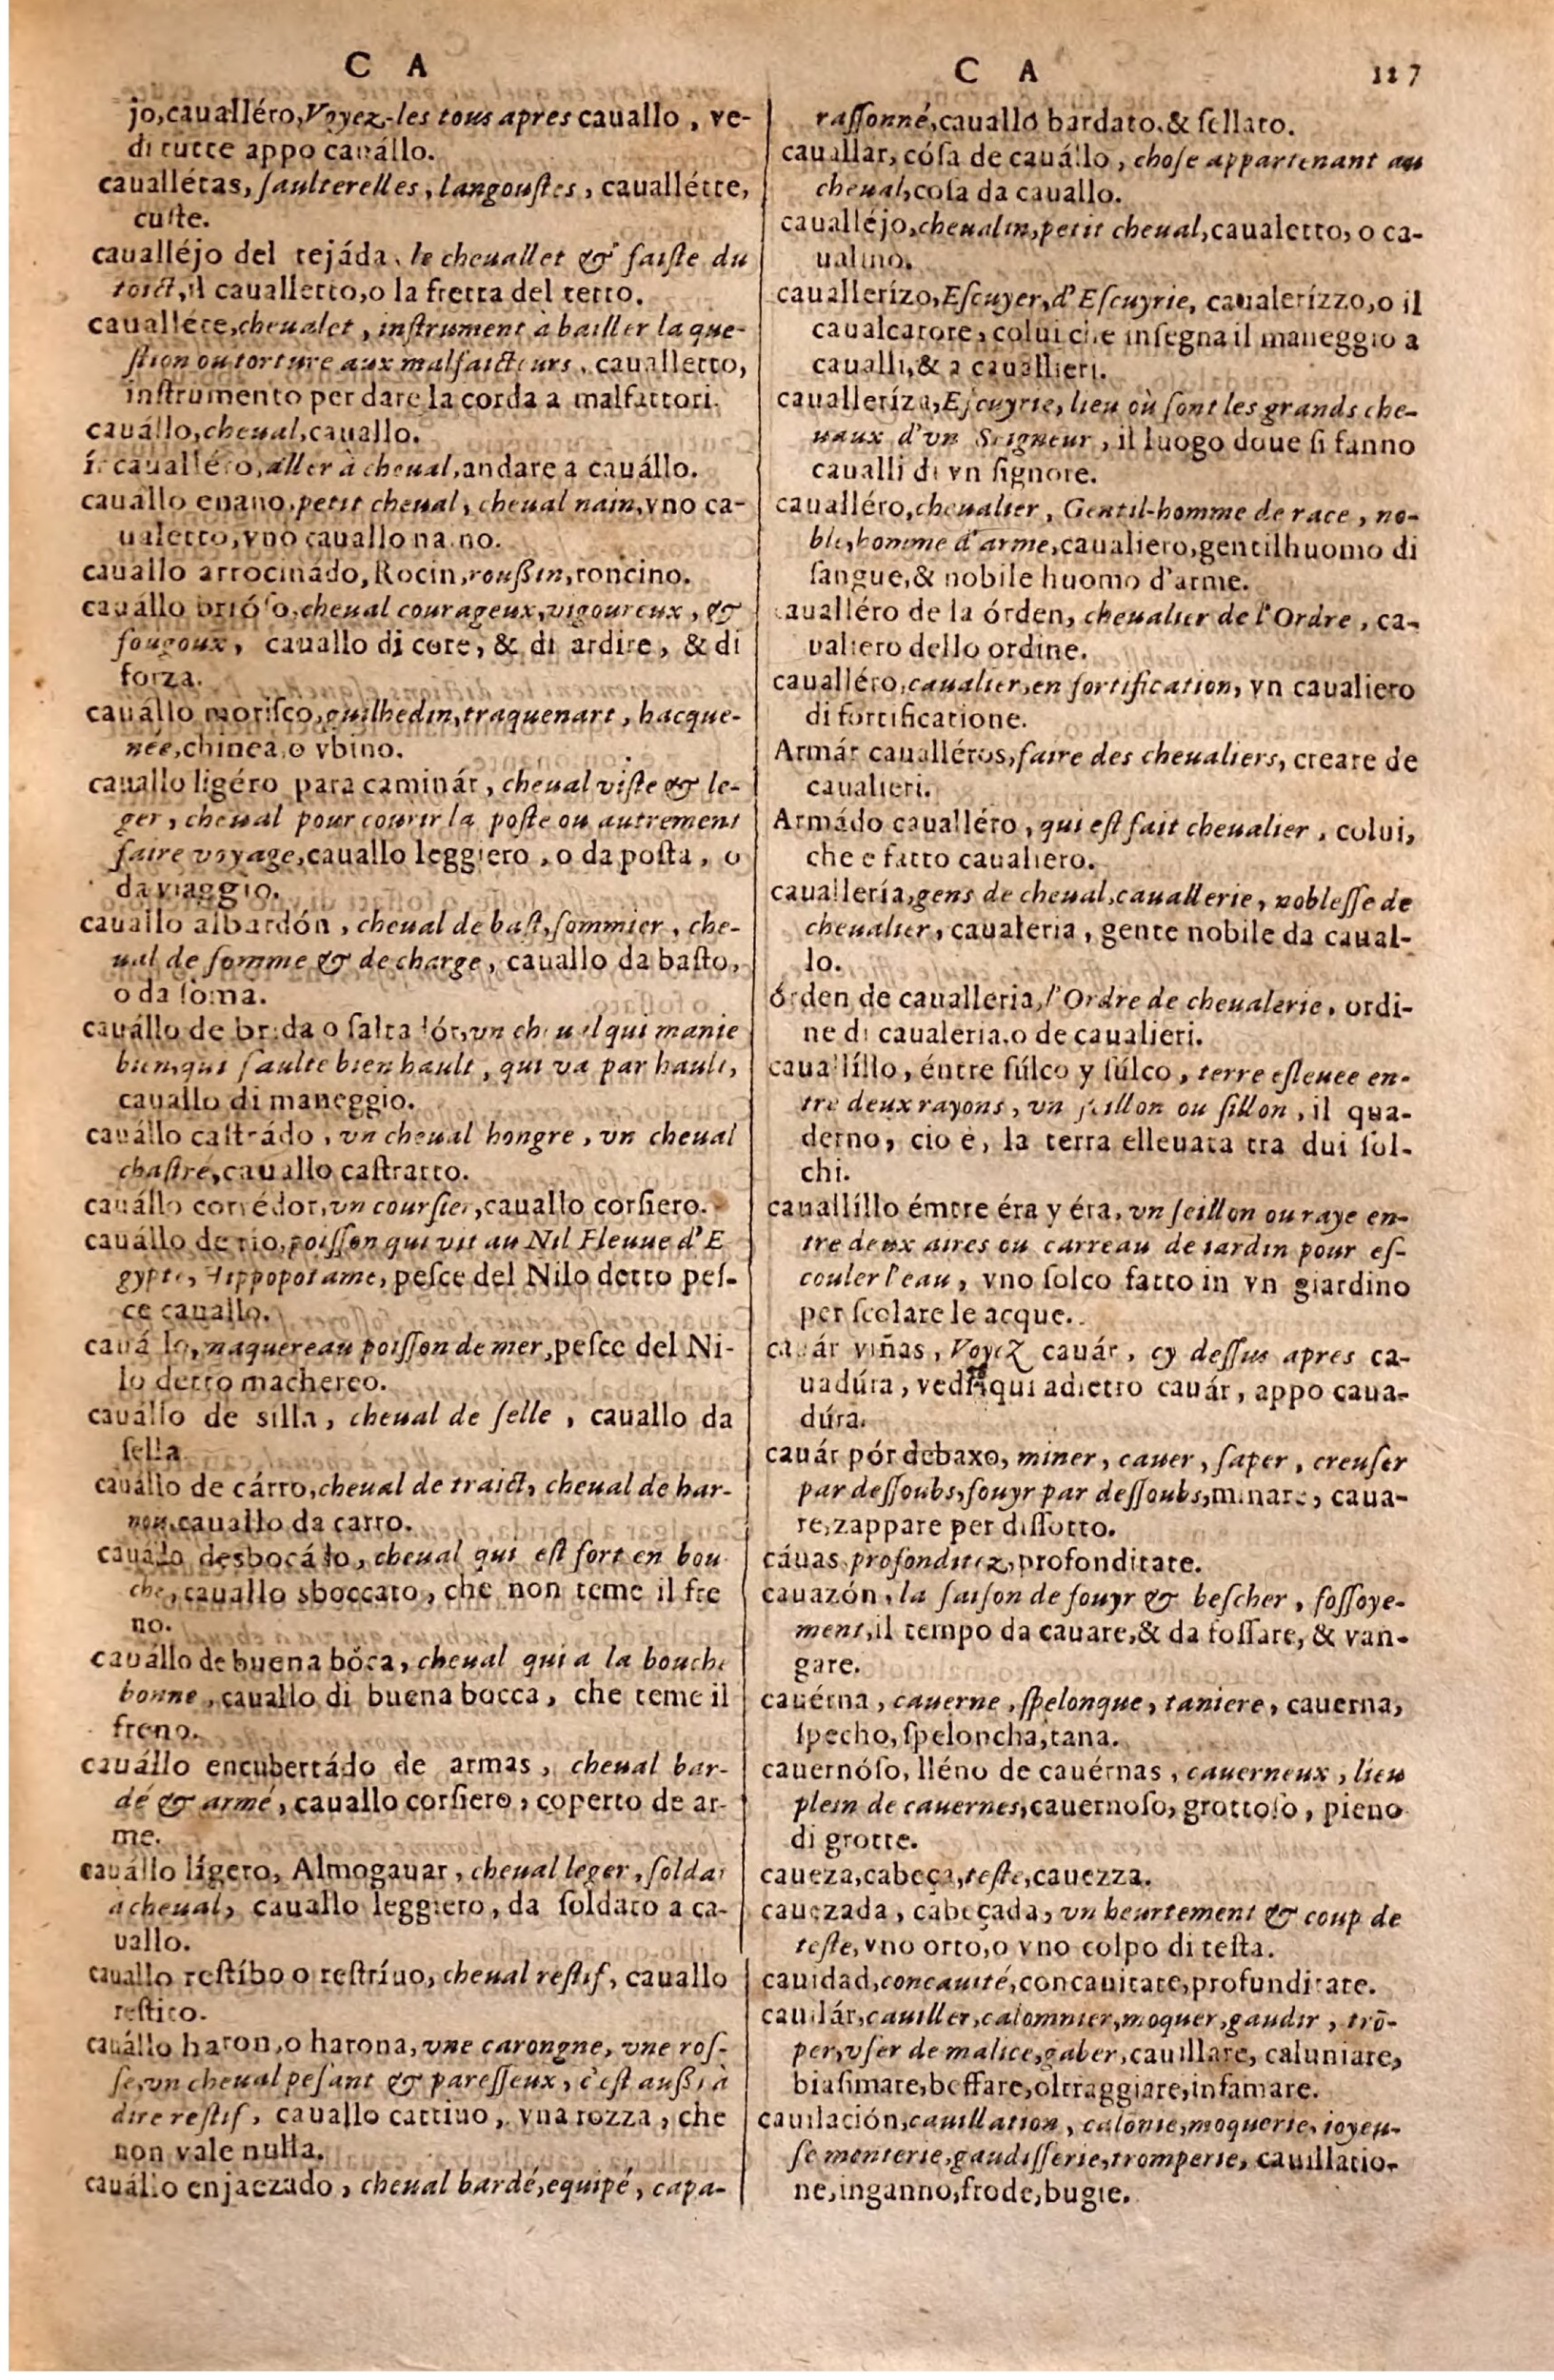 C A
jo,caualléro,Voyez-les tous apres cauallo, ve-
di tutte appo cauállo.
cauallétas, ſaulterelles, langouſtes, cauallétte,
cuſte.
cauálléjo del tejáda, le cheuallet & faiſte du
toict,il caualletto,o la fretta del tetto.
caualléte,cheualet, inſtrument à bailler la que-
ſtion ou torture aux malfaicteurs, caualletto,
inſtrumento per dare la corda a malfattori.
cauállo,cheual,cauallo.
ír cauálléro,aller à cheual,andare a cauállo.
cauállo enano,petit cheual, cheual nain,vno ca-
ualetto,vno cauallo nano.
cauállo arrocinádo,Rocin,roußin,roncino.
cauállo brióſo,cheual courageux,vigoureux, &
fougoux, cauallo di core, & di ardire, & di
forza.
cauállo moriſco,guilhedin,traquenart, hacque-
née,chinea,o vbino.
cauallo ligéro para caminár, cheual viſte & le-
ger, cheual pour courir la poſte ou autrement
faire voyage,cauallo leggiero, o da poſta, o
da viaggio.
cauallo albardón, cheual de baſt,ſommier, che-
ual de ſomme & de charge, cauallo da baſto,
o da ſoma.
cauállo de brida o ſaltadór,vn cheual qui manie
bien,qui ſaulte bien hault, qui va par hault,
cauallo di maneggio.
cauállo caſtrádo, vn cheual hongre, vn cheual
chaſtré,cauallo caſtratto.
cauállo corrédor,vn courſier,cauallo corſiero.
cauállo de rio,poiſſon qui vit au Nil Fleuue d'E
gypte, Hippopotame, peſce del Nilo detto peſ-
ce cauallo.
cauállo,maquereau poiſſon de mer,peſce del Ni-
lo detto machereo.
cauállo de silla, cheual de ſelle, cauallo da
ſella
cauállo de cárro,cheual de traict, cheual de har-
nou,cauallo da carro.
cauálo desbocálo, cheual qui eſt fort en bou-
che, cauallo sboccato, che non teme il fre
no.
cauállo de buena bóca, cheual qui a la bouche
bonne, cauallo di buena bocca, che teme il
freno.
cauállo encubertádo de armas, cheual bar-
dé & armé, cauallo corſiero, coperto de ar-
me.
cauállo lígero, Almogauar, cheual leger, ſoldat
à cheual, cauallo leggiero, da ſoldato a ca-
uallo.
cauallo reſtíbo o reſtríuo, cheual reſtif, cauallo
reſtito.
cauállo haron,o harona, vne carongne, vne roſ-
ſe,vn cheual peſant & pareſſeux, c'eſt außi à
dire reſtif, cauallo cattiuo, vna rozza, che
non vale nulla.
cauállo enjaezado, cheual bardé,equipé, capa-
C A 127
raſſonné,cauallo bardato,& ſellato.
cauallar, cóſa de cauállo, choſe appartenant au
cheual,coſa da cauallo.
cauálléjo,cheualin,petit cheual,caualetto, o ca-
ualino.
cauallerízo,Eſcuyer,d'Eſcuyrie, caualerizzo,o il
caualcatore, colui che inſegna il maneggio a
caualli,& a cauallieri.
caualleríza,Eſcuyrie, lieu où ſont les grands che-
uaux d'vn Seigneur, il luogo doue ſi fanno
caualli di vn ſignore.
cauálléro,cheualier, Gentil-homme de race, no-
ble,homme d'arme,caualiero,gentilhuomo di
ſangue,& nobile huomo d'arme.
cauálléro de la órden, cheualier de l'Ordre, ca-
ualiero dello ordine.
cauálléro,caualier,en fortification, vn caualiero
di fortificatione.
Armár cauálléros,faire des cheualiers, creare de
caualieri.
Armádo cauálléro, qui eſt fait cheualier, colui,
che e fatto caualiero.
cauallería,gens de cheual,cauallerie, nobleſſe de
cheualier, caualeria, gente nobile da caual-
lo.
órden de caualleria,l'Ordre de cheualerie, ordi-
ne di caualeria,o de caualieri.
cauallíllo, éntre ſúlco y ſúlco, terre eſleuee en-
tre deux rayons, vn ſeillon ou ſillon, il qua-
derno, cio è, la terra elleuata tra dui ſol-
chi.
cauallíllo émtre éra y éra, vn ſeillon ou raye en-
tre deux aires ou carreau de iardin pour eſ-
couler l'eau, vno ſolco fatto in vn giardino
per ſcolare le acque.
cauár viñas, Voyez cauár, cy deſſus apres ca-
uadúra, vedi qui adietro cauár, appo caua-
dúra.
cauár pór debaxo, miner, cauer, ſaper, creuſer
par deſſoubs,fouyr par deſſoubs,minare, caua-
re,zappare per diſſotto.
cáuas,profonditez,profonditate.
cauazón, la ſaiſon de fouyr & beſcher, foſſoye-
ment,il tempo da cauare,& da foſſare, & van-
gare.
cauérna, cauerne, ſpelonque, taniere, cauerna,
ſpecho, ſpeloncha, tana.
cauernóſo, lléno de cauérnas, cauerneux, lieu
plein de cauernes,cauernoſo, grottoſo, pieno
di grotte.
caueza,cabeça,teſte,cauezza.
cauezada, cabeçada, vn heurtement & coup de
teſte, vno orto,o vno colpo di teſta.
cauidad,concauité,concauitate,profunditate.
cauilár,cauiller,calomnier,moquer,gaudir, trō-
per,vſer de malice,gaber,cauillare, caluniare,
biaſimare,beffare,oltraggiare,infamare.
cauilación,cauillation, calōnie,moquerie, ioyeu-
ſe menterie,gaudiſſerie,tromperie, cauillatio-
ne,inganno,frode,bugie.